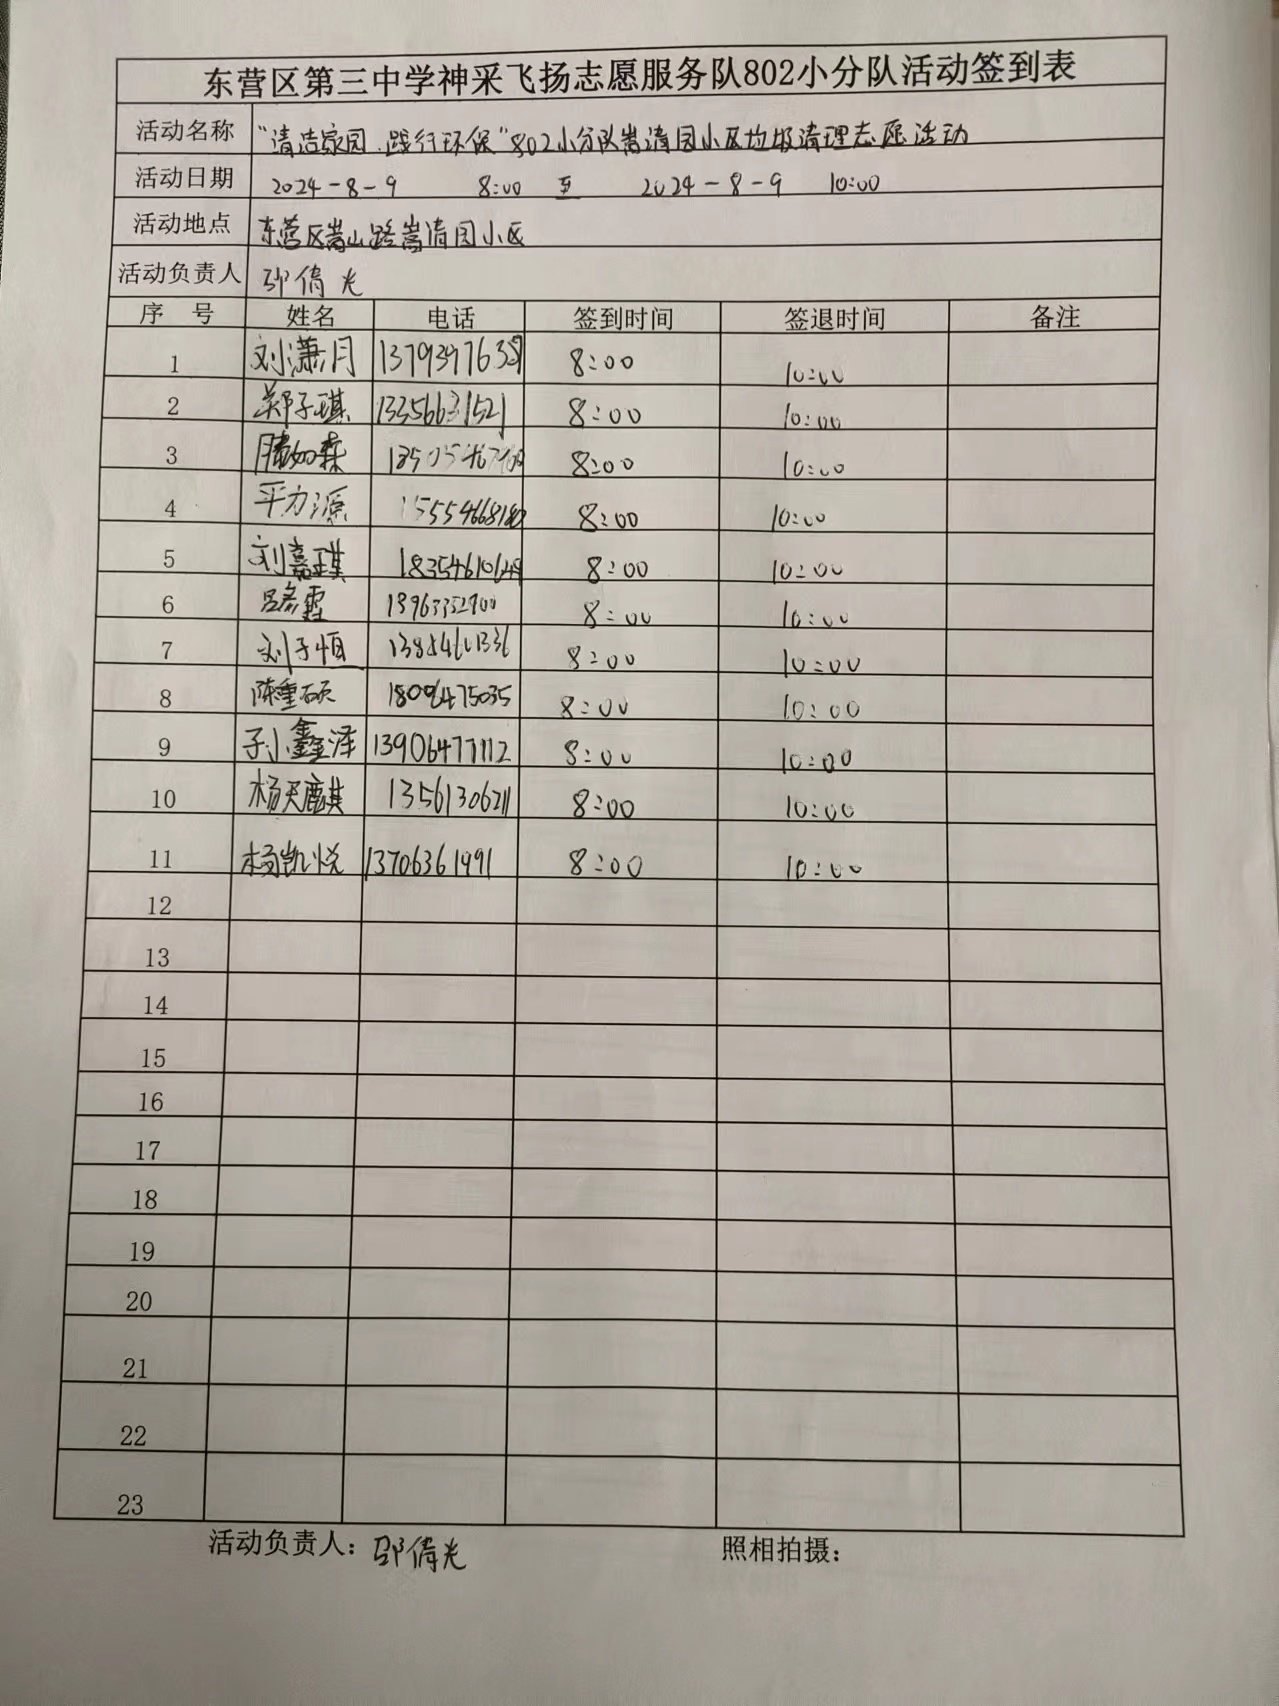 东营区第三中学神采飞扬志愿服务队802小分队活动签到表
活动名称 “清洁家园.践行环保”802小分队嵩清园小区垃圾清理志愿活动
活动日期 2024-8-9 8:00 至 2024-8-9 10:00
活动地点 东营区嵩山路嵩清园小区
活动负责人 邵倩光
序 号 姓名 电话 签到时间 签退时间 备注
1 刘潇月 8:00 10:00
2 郑子琪 13356631521 8:00 10:00
3 8:00 10:00
4 平力源 8:00 10:00
5 刘嘉琪 8:00 10:00
6 吕彦霏 8:00 10:00
7 刘子恒 8:00 10:00
8 18096475035 8:00 10:00
9 孙鑫泽 8:00 10:00
10 杨天麒 13561306211 8:00 10:00
11 杨凯悦 13706361991 8:00 10:00
12
13
14
15
16
17
18
19
20
21
22
23
活动负责人：邵倩光 照相拍摄：